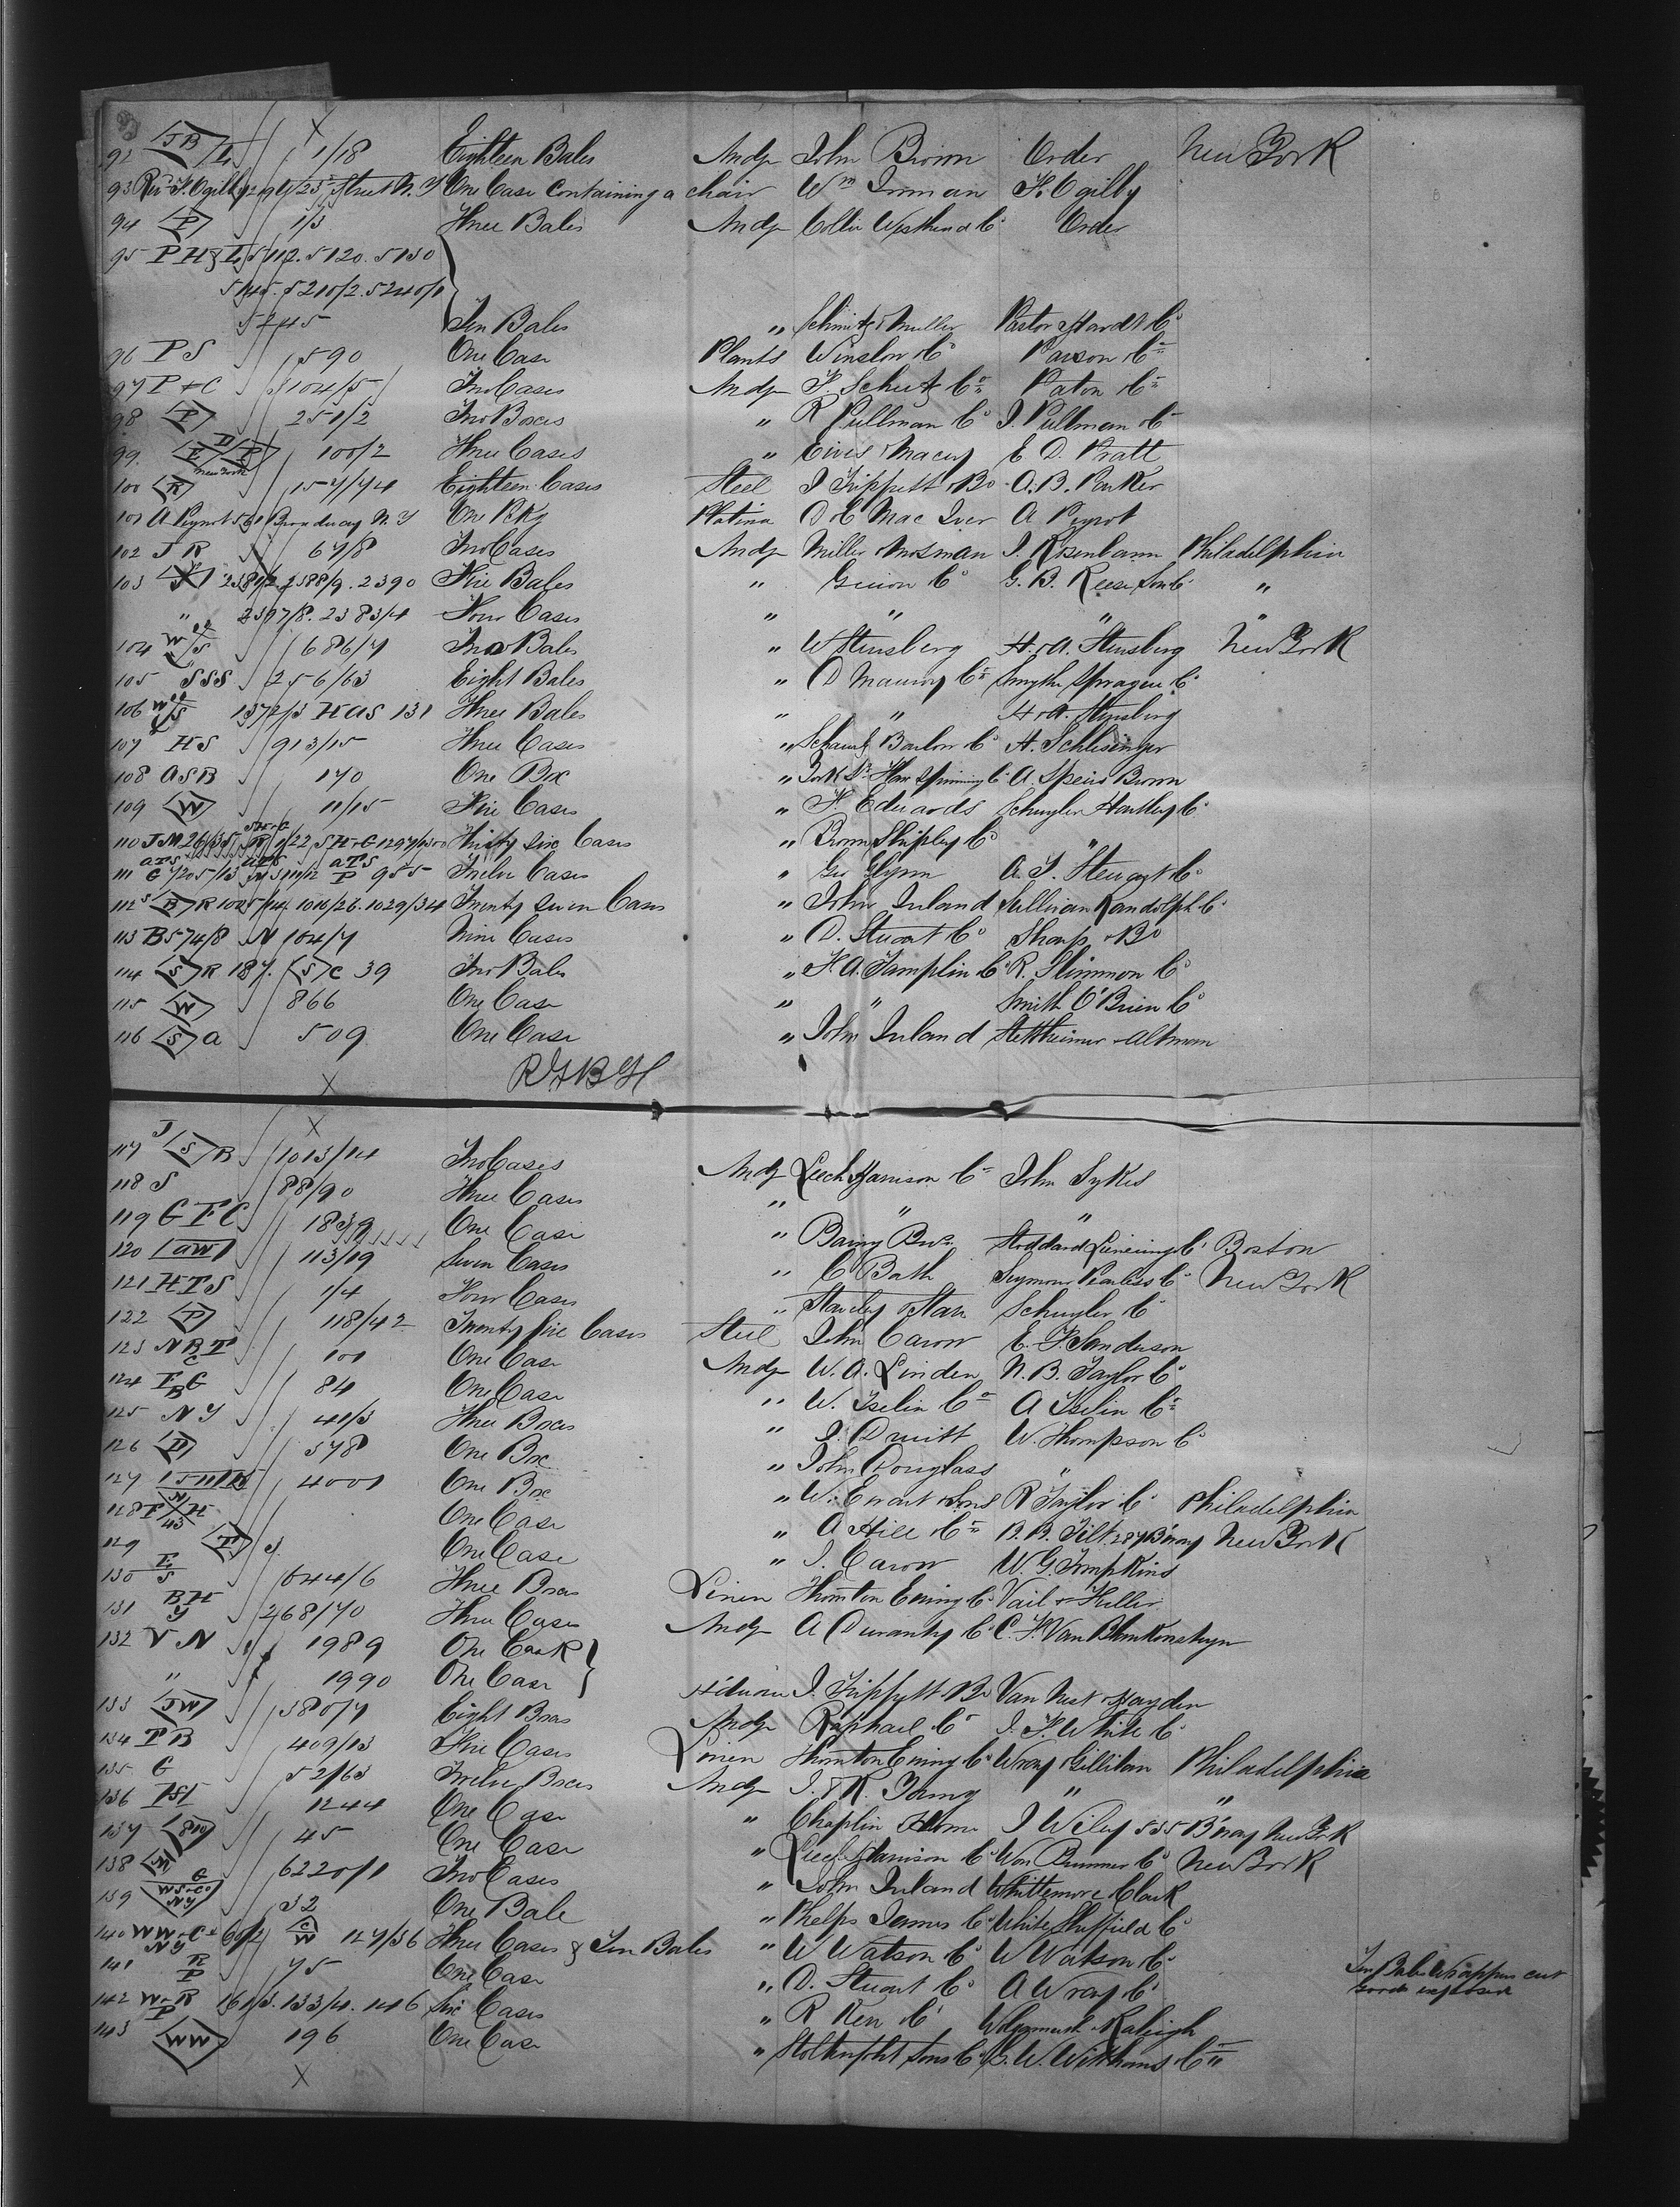 92 JB/L 1/18 Eighteen Bales Mdze John Brown Order New York
93 Rev F. Ogilby 29 W 25 Street N.Y One Case Containing a chair Wm Inman F. Ogilby
94 P 1/3 Three Bales Mdze Order
95 PH&L 5112. 5120. 5130
5145. 5210/2. 5240/1
5245 Ten Bales " Schmitz & Muller Pastor Hardt Co
96 PS 590 One Case Plants Winslow & Co Parson & Co
97 P+C 5104/5 Two Cases Mdze F. Schutz Co Paton & Co
98 P 251/2 Two Boxes " R Pullman Co J. Pullman & Co
99 New York 100/2 Three Cases " Macey E D. Pratt
100 R 157/74 Eighteen Cases Steel J Trippett & Bro O. B. Parker
101 A Peyrot 561 Broadway N.Y One Pkg Platina D & C Mac Iver A Peyrot
102 J R 67/8 Two Cases Mdze Miller & Mosman J. Rosenbaum Philadelphia
103 2381/2 2388/9. 2390 Five Bales " Guion Co G. B. Reese Son Co "
" 2397/8. 2383/4 Four Cases " " " "
104 W/S 686/7 Two Bales " W Stursberg H. & A. Stursberg New York
105 SSS 256/63 Eight Bales " O Maury Co Smythe Sprague Co
106 W/S 1372/3 HAS 131 Three Bales " " H & A. Stursberg
107 HS 913/15 Three Cases " Schwartz Barlow Co A. Schlesinger
108 ASB 170 One Box " York St Flax Spinning Co A. Speirs Brown
109 W 11/15 Five Cases " F. Edwards Schuyler Hartley Co
110 JM 26/35 R 1/22 SH&G 1297/1300 Thirty Six Cases " Brown Shipley Co "
111 ATS G 7205/13 ATS N 3111/12 ATS P 955 Twelve Cases " Geo Glynn A. T. Stewart Co
112 B R 1005/14. 1016/26. 1029/34 Twenty Seven Cases " John Inland Sullivan Randolph Co
113 B 574/8 N 104/7 Nine Cases " D. Stuart Co Sharp & Bo
114 S R 187. S C 39 Two Bales " F. A. Tamplin Co R. Slimmon Co
115 W 866 One Case " " Smith O'Brien Co
116 S A 509 One Case " John Inland Stettheimer & Altman
117 J S B 1013/14 Two Cases Mdze Leech Harrison Co John Sykes
118 S 88/90 Three Cases " " "
119 GFC 1839 One Case " Baring Bros Stoddard Lovering Co Boston
120 AW 113/19 Seven Cases " C Bath Seymour Peerless Co New York
121 HTS 1/4 Four Cases " Staveley & Starr Schuyler Co
122 P 118/42 Twenty five Cases Steel John Carow E. F. Sanderson
123 NBT C 101 One Case Mdze W. A. Linden N. B. Taylor Co
124 FG B 84 One Case " W. Iselin Co A Iselin Co
125 NY 41/3 Three Boxes " J. Dewitt W. Thompson Co
126 D 578 One Box " John Douglass "
127 4001 One Box " W. Ewart & Sons R Taylor Co Philadelphia
128 F/H 43 One Case " A Hill & Co B. B. Tilt. 287 B'way New York
129 T J One Case " J. Carow W. G. Tompkins
130 T S 1044/6 Three Boxes Linen Thornton Ewing Co Vail & Fuller
131 BH Y 2468/70 Three Cases Mdze A Duranty Co C. F. Van Blankensteyn
132 VN 1989 One Cask
" 1990 One Case Hdware J. Trippett Bro Van Nest & Hayden
133 JW 380/7 Eight Boxes Mdze Raphael & Co J. F. White Co
134 PB 409/13 Five Cases Linen Thornton Ewing Co Wray & Gillilan Philadelphia
135 G 52/63 Twelve Boxes Mdze J. & R. Young " "
136 1244 One Case " Chaplin J Wiley 535 B'way New York
137 45 One Case " Leech Harrison Co Won Bummer Co New York
138 G 6220/1 Two Cases " John Inland Whittemore Clark
139 WS&Co NY 32 One Bale " Phelps James Co White Sheffield Co
140 WW&Co NY 60/2 C W 127/36 Three Cases & Ten Bales " W Watson Co W Watson Co Ten Bales Wrappers cut Goods exposed
141 R P 75 One Case " D. Stuart Co A Wray Co
142 W&R P 161/3. 133/4. 146 Six Cases " R Kerr & Co & Raleigh
143 WW 196 One Case " Stolterfoht Sons Co G. W. Withams Co